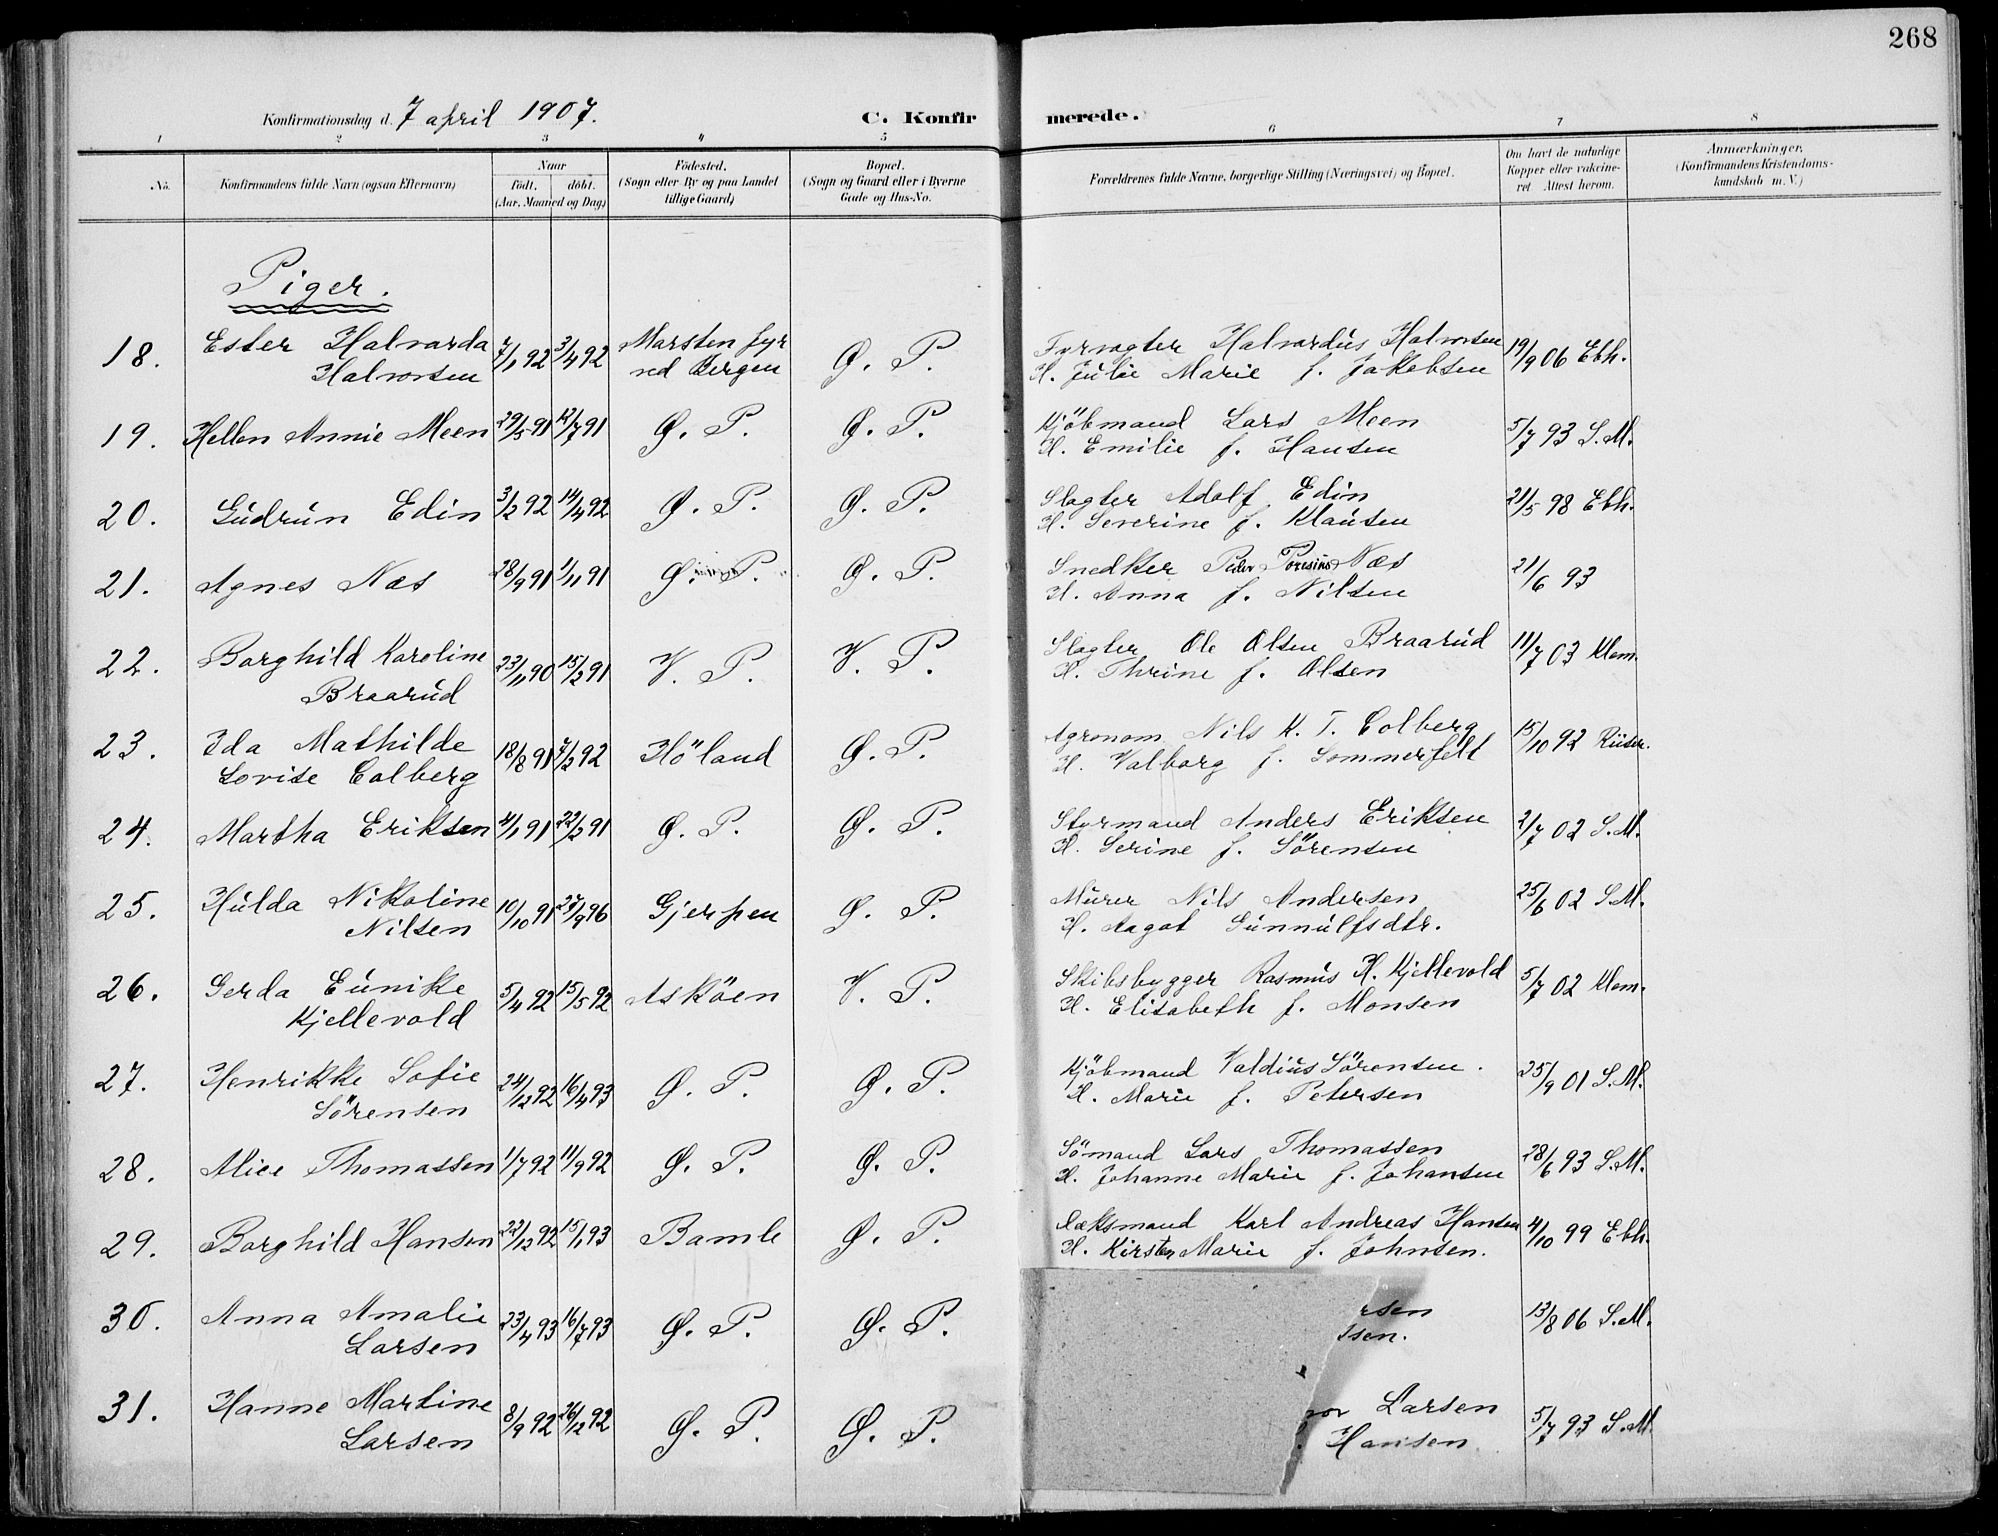 268
Konfirmationsdag d. 7 april 1907. C. Konfirmerede.
1 2 3 4 5 6 7 8
No. Konfirmandens fulde Navn (ogsaa Efternavn) Naar födt. döbt. (Aar, Maaned og Dag) Födested. (Sogn eller By og paa Landet tillige Gaard) Bopæl. (Sogn og Gaard eller i Byerne Gade og Hus-No. Forældrenes fulde Navne, borgerlige Stilling (Næringsvei) og Bopæl. Om havt de naturlige Kopper eller vakcineret. Attest herom. Anmærkninger. (Konfirmandens Kristendomskundskab m. V.)
Piger.
18. Ester Halvarda 7/1 92 3/4 92 Marsten fyr Ø. P. Fyrvogter Halvardus Halvorsen 19/9 06 Ebh.
Halvorsen ved Bergen H. Julie Marie f. Jakobsen
19. Hellen Annie Meen 29/5 91 12/7 91 Ø. P. Ø. P. Kjöbmand Lars Meen 5/7 93 S. M.
H. Emilie f. Hansen
20. Gudrun Edin 3/2 92 14/4 92 Ø. P. Ø. P. Slagter Adolf Edin 21/5 98 Ebh.
H. Severine f. Klausen
21. Agnes Næs 28/9 91 1/11 91 Ø. P. Ø. P. Snedker Peder Poresius Næs 21/6 93
H. Anna f. Nilsen
22. Borghild Karoline 23/11 90 15/2 91 V. P. V. P. Slagter Ole Olsen Braarud 11/7 03 Klem.
Braarud H. Thrine f. Olsen
23. Ida Mathilde 18/8 91 7/2 92 Höland Ø. P. Agronom Nils K. T. Colberg 15/10 92 Riiser.
Lovise Colberg H. Valborg f. Sommerfelt
24. Martha Eriksen 4/1 91 22/2 91 Ø. P. Ø. P. Styrmand Anders Eriksen 2/7 02 S. M.
H. Serine f. Sörensen
25. Hulda Nikoline 10/10 91 27/9 96 Gjerpen Ø. P. Murer Nils Andersen 25/6 02 S. M.
Nilsen H. Aagot Gunnulfsdtr.
26. Gerda Eunike 5/4 92 15/5 92 Asköen V. P. Skibsbygger Rasmus H. Kjellevold 5/7 02 Klem.
Kjellevold H. Elisabeth f. Monsen
27. Henrikke Sofie 24/12 92 16/4 93 Ø. P. Ø. P. Kjöbmand Valdius Sörensen. 25/9 01 S. M.
Sörensen H. Marie f. Petersen
28. Alice Thomassen 1/7 92 11/9 92 Ø. P. Ø. P. Sömand Lars Thomassen 28/6 93 S. M.
H. Johanne Marie f. Johansen
29. Borghild Hansen 22/12 92 15/1 93 Bamle Ø. P. Væksmand Karl Andreas Hansen 4/10 99 Ebh.
H. Kirsten Marie f. Johnsen.
30. Anna Amalie 23/4 93 16/7 93 Ø. P. Ø. P. rsen 13/8 06 S. M.
Larsen sen.
31. Hanne Martine 8/9 92 26/12 92 Ø. P. Ø. P. Larsen 5/7 93 S. M.
Larsen Hansen